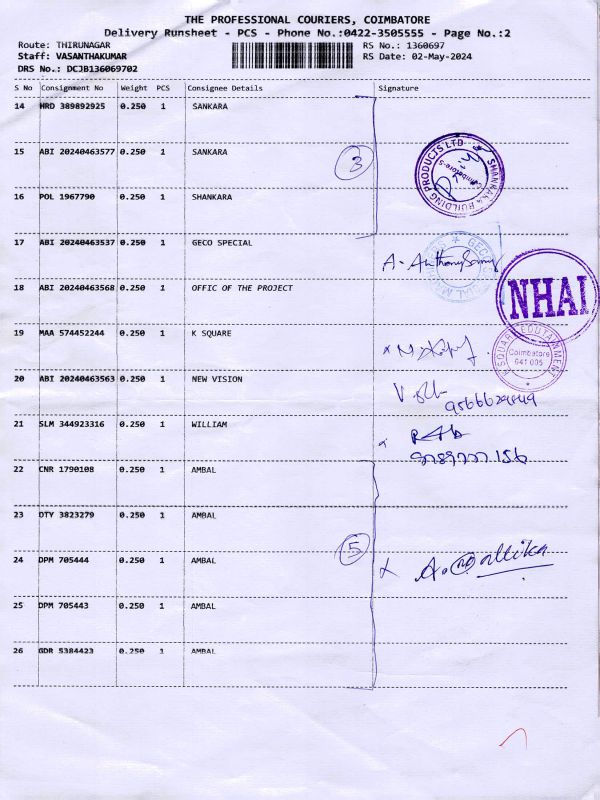 THE PROFESSIONAL COURIERS, COIMBATORE
Delivery Runsheet - PCS - Phone No.:0422-3505555 - Page No.:2
Route: THIRUNAGAR RS No.: 1360697
Staff: VASANTHAKUMAR RS Date: 02-May-2024
DRS No.: DCJB136069702
S No Consignment No Weight PCS Consignee Details Signature
14 HRD 389892925 0.250 1 SANKARA
15 ABI 20240463577 0.250 1 SANKARA
3
SHANKARA BUILDING PRODUCTS LTD
Coimbatore-5
16 POL 1967790 0.250 1 SHANKARA
17 ABI 20240463537 0.250 1 GECO SPECIAL
A. Anthonysamy
18 ABI 20240463568 0.250 1 OFFIC OF THE PROJECT
NHAI
19 MAA 574452244 0.250 1 K SQUARE
K SQUARE EDUTAINMENT
Coimbatore
641 005
20 ABI 20240463563 0.250 1 NEW VISION
21 SLM 344923316 0.250 1 WILLIAM
22 CNR 1790108 0.250 1 AMBAL
23 DTY 3823279 0.250 1 AMBAL
5
24 DPM 705444 0.250 1 AMBAL
A. Mallika
25 DPM 705443 0.250 1 AMBAL
26 GDR 5384423 0.250 1 AMBAL